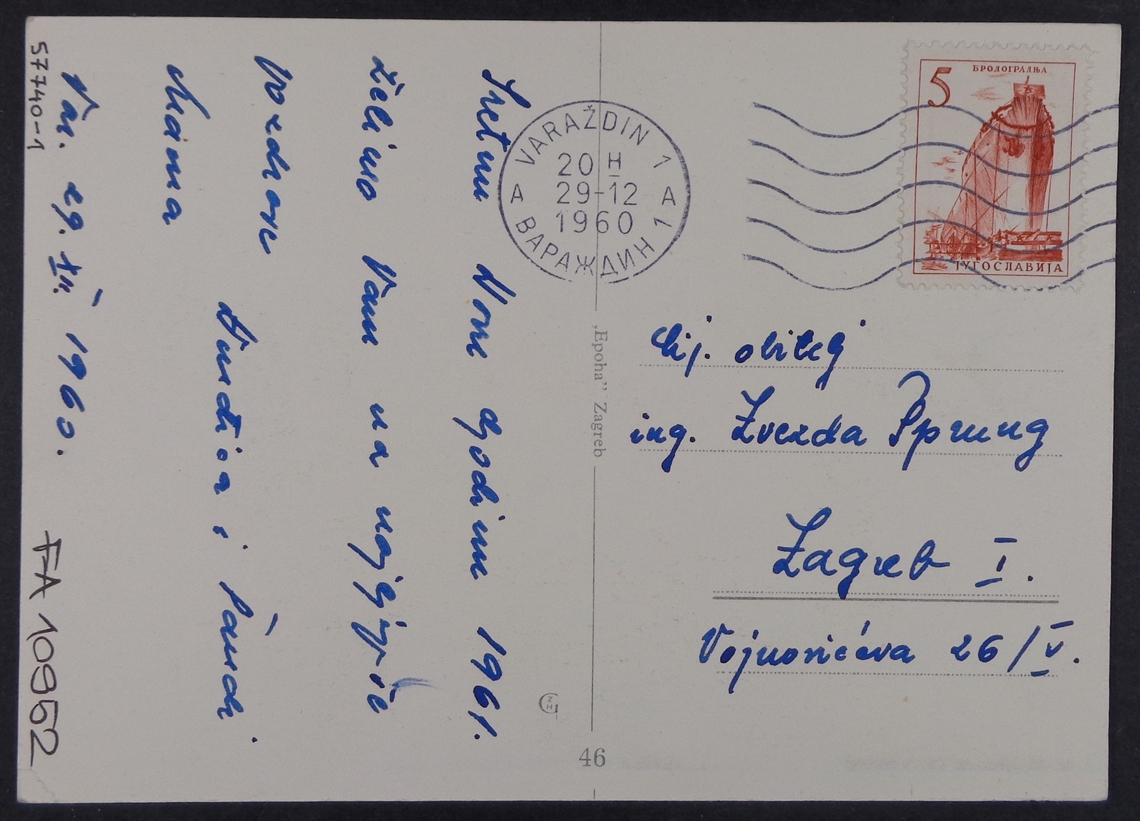 57740-1
Sretnu Novu Godinu 1961.
želimo Vam uz najljepše
pozdrave
Đurđica i
Mama
Var. 29. XII. 1960.
FA 10952
VARAŽDIN 1
20 H
A 29-12 A
1960
ВАРАЖДИН 1
5
БРОДОГРАДЊА
ЈУГОСЛАВИЈА
Cij. obitelj
ing. Zvezda Šprung
Zagreb I.
Vojnovićeva 26/V.
„Epoha" Zagreb
ZH
46